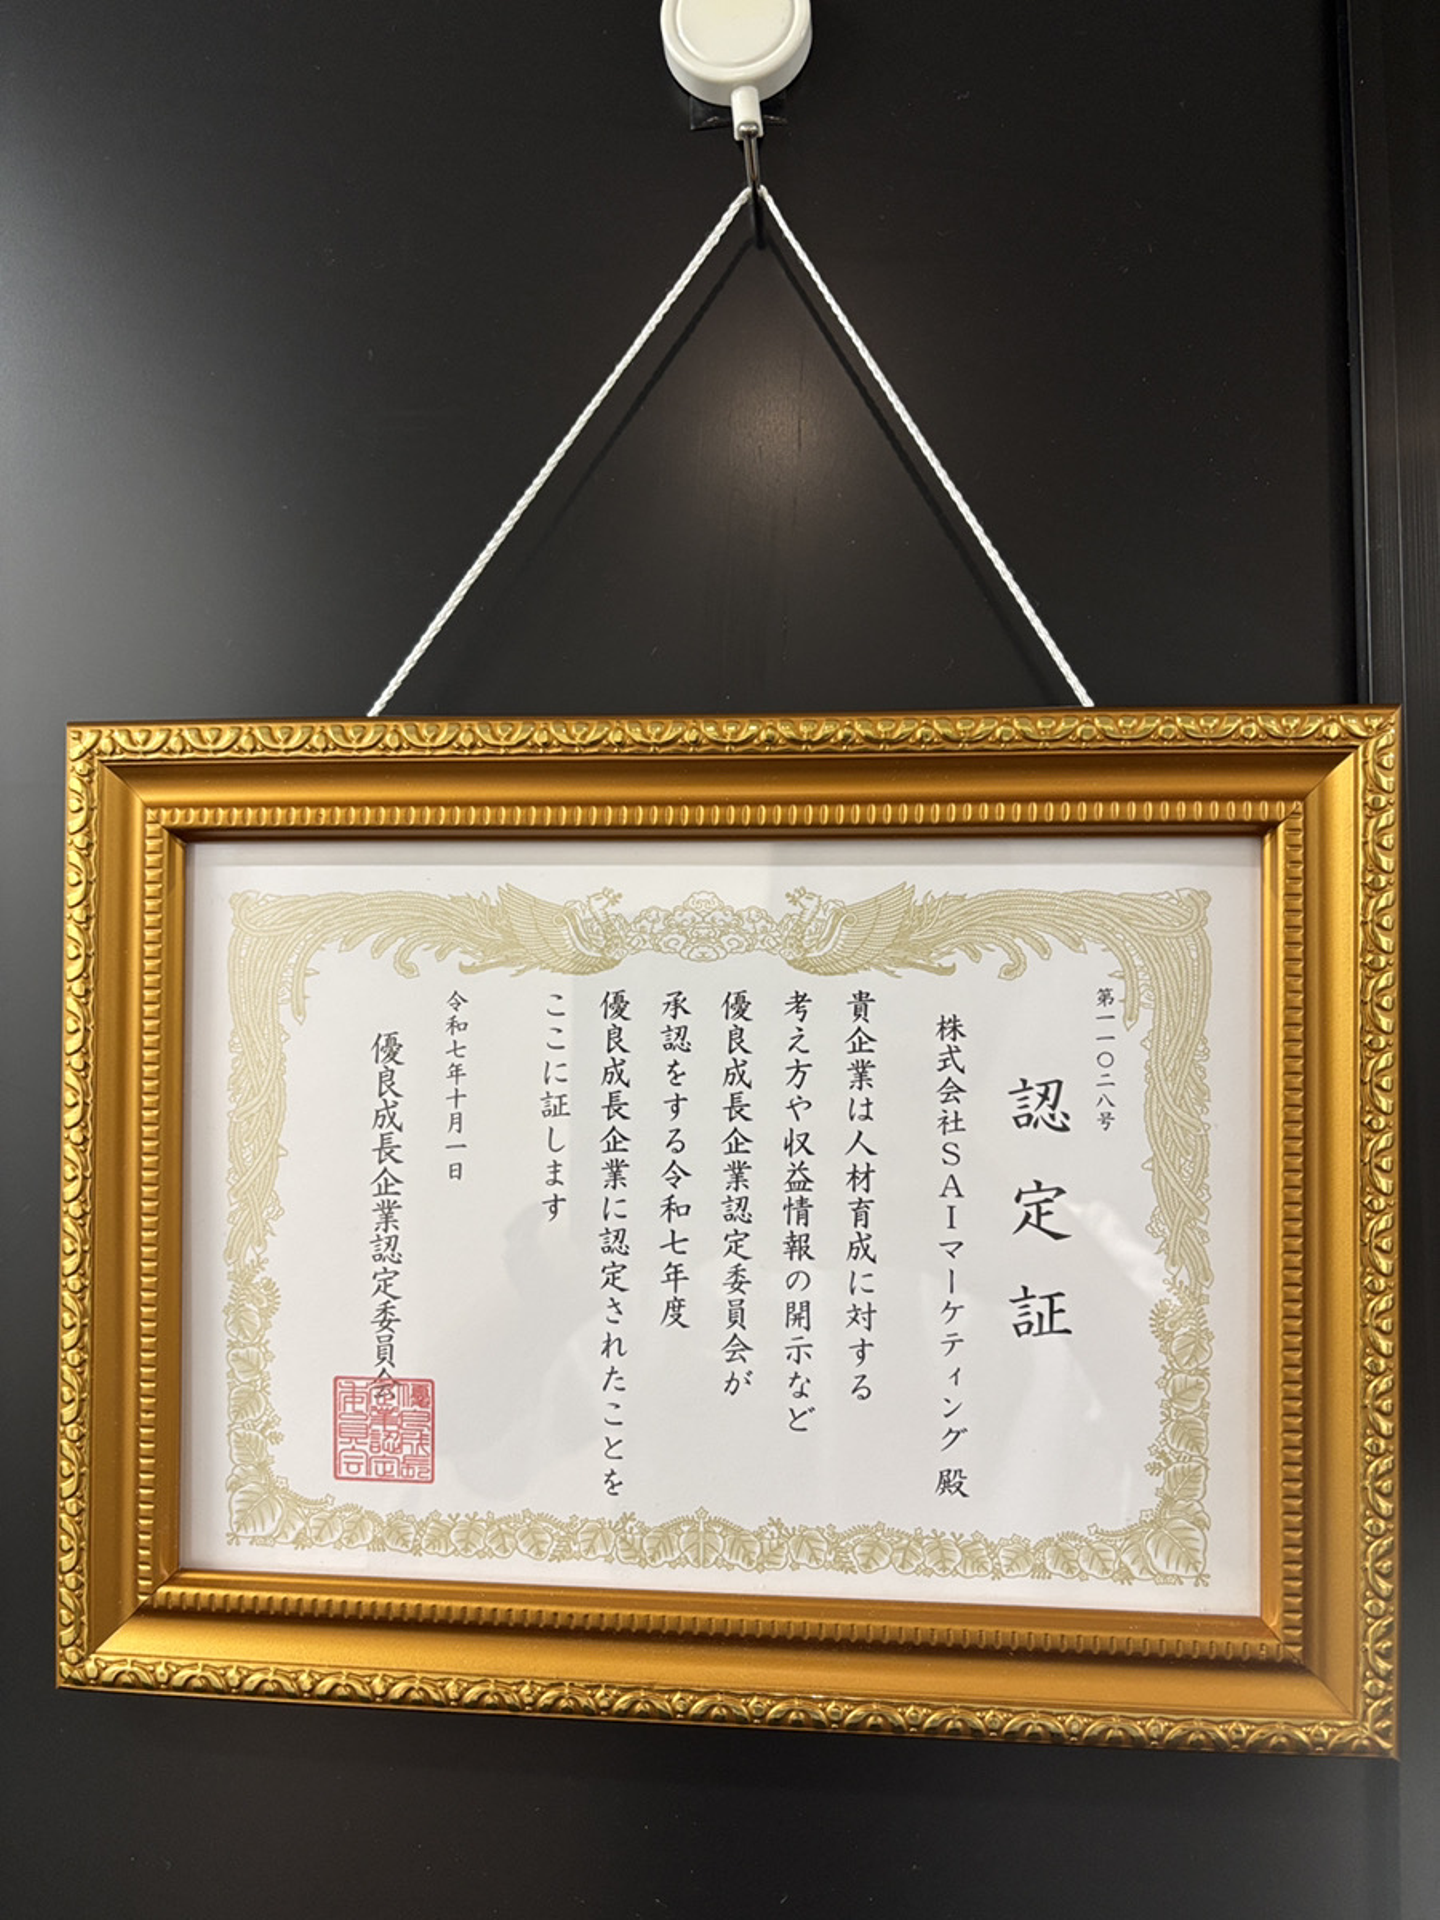 第一一〇二八号
認定証
株式会社SAIマーケティング 殿
貴企業は人材育成に対する
考え方や収益情報の開示など
優良成長企業認定委員会が
承認をする令和七年度
優良成長企業に認定されたことを
ここに証します
令和七年十月一日
優良成長企業認定委員会
優良成長
企業認定
委員会